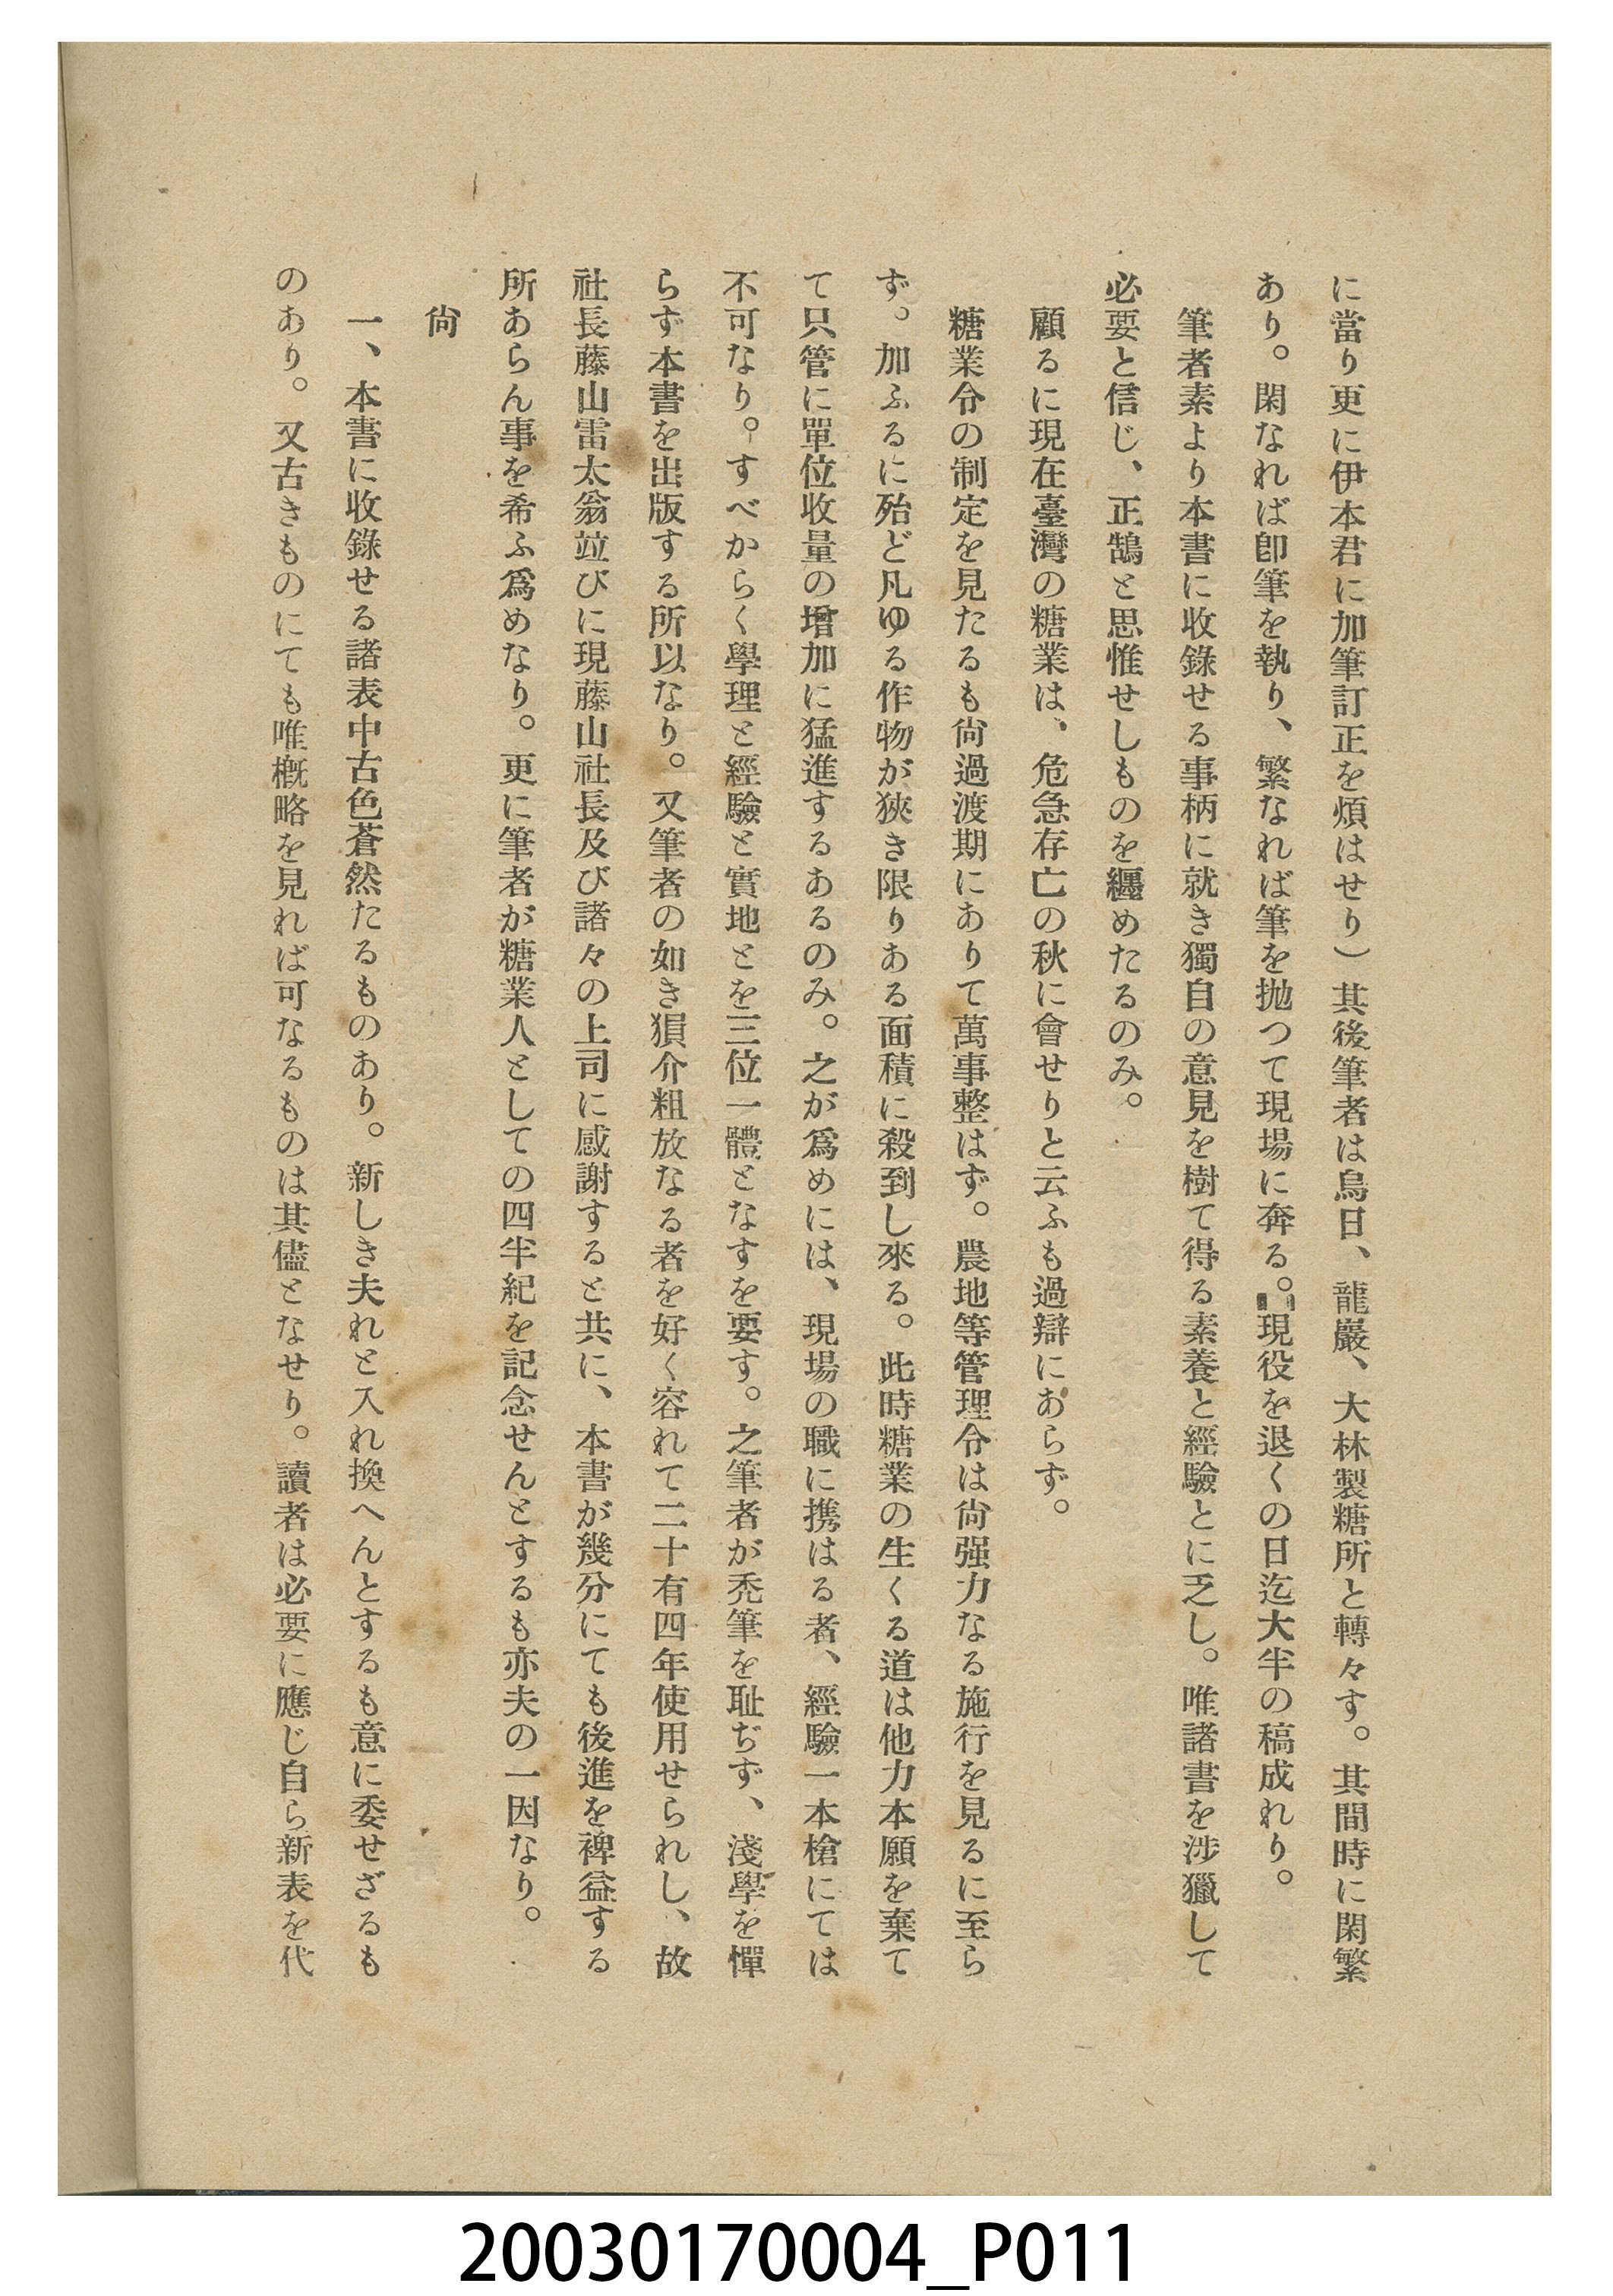 に當り更に伊本君に加筆訂正を煩はせり）其後筆者は烏日、龍巖、大林製糖所と轉々す。其間時に閑繁
あり。閑なれば卽筆を執り、繁なれば筆を抛つて現場に奔る。現役を退くの日迄大半の稿成れり。
筆者素より本書に收錄せる事柄に就き獨自の意見を樹て得る素養と經驗とに乏し。唯諸書を涉獵して
必要と信じ、正鵠と思惟せしものを纒めたるのみ。
顧るに現在臺灣の糖業は、危急存亡の秋に會せりと云ふも過辯にあらず。
糖業令の制定を見たるも尙過渡期にありて萬事整はず。農地等管理令は尙强力なる施行を見るに至ら
ず。加ふるに殆ど凡ゆる作物が狹き限りある面積に殺到し來る。此時糖業の生くる道は他力本願を棄て
て只管に單位收量の增加に猛進するあるのみ。之が爲めには、現場の職に携はる者、經驗一本槍にては
不可なり。すべからく學理と經驗と實地とを三位一體となすを要す。之筆者が禿筆を耻ぢず、淺學を憚
らず本書を出版する所以なり。又筆者の如き狷介粗放なる者を好く容れて二十有四年使用せられし、故
社長藤山雷太翁竝びに現藤山社長及び諸々の上司に感謝すると共に、本書が幾分にても後進を裨益する
所あらん事を希ふ爲めなり。更に筆者が糖業人としての四半紀を記念せんとするも亦夫の一因なり。
尙
一、本書に收錄せる諸表中古色蒼然たるものあり。新しき夫れと入れ換へんとするも意に委せざるも
のあり。又古きものにても唯槪略を見れば可なるものは其儘となせり。讀者は必要に應じ自ら新表を代
20030170004_P011